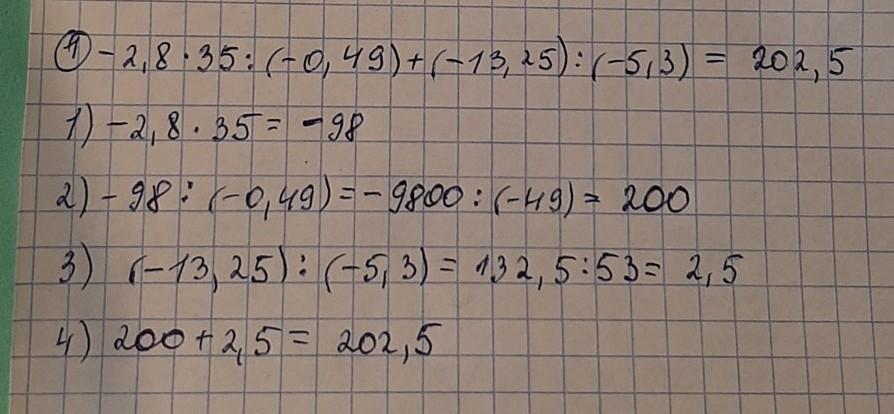 ④ -2,8 · 35 : (-0,49) + (-13,25) : (-5,3) = 202,5
1) -2,8 · 35 = -98
2) -98 : (-0,49) = -9800 : (-49) = 200
3) (-13,25) : (-5,3) = 132,5 : 53 = 2,5
4) 200 + 2,5 = 202,5